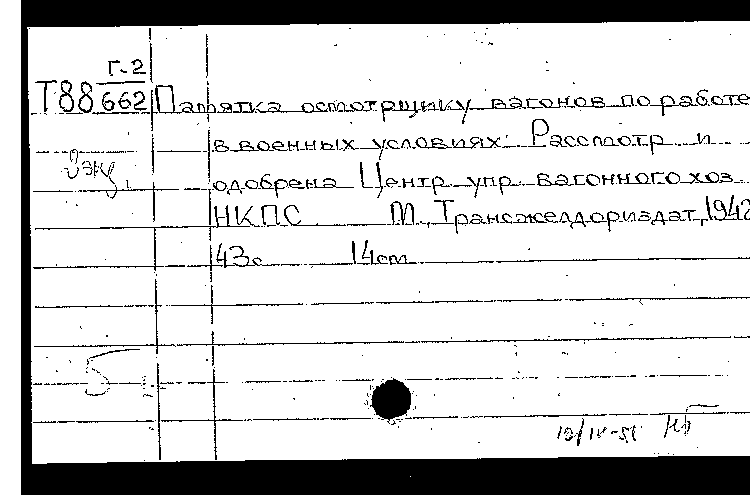 Г-2
Т88 662 Памятка осмотрщику вагонов по работе
в военных условиях. Рассмотр и
2 экз.
одобрена Центр упр. вагонного хоз
НКПС М., Трансжелдориздат, 1942
43с 14см
Б
12/IV-51